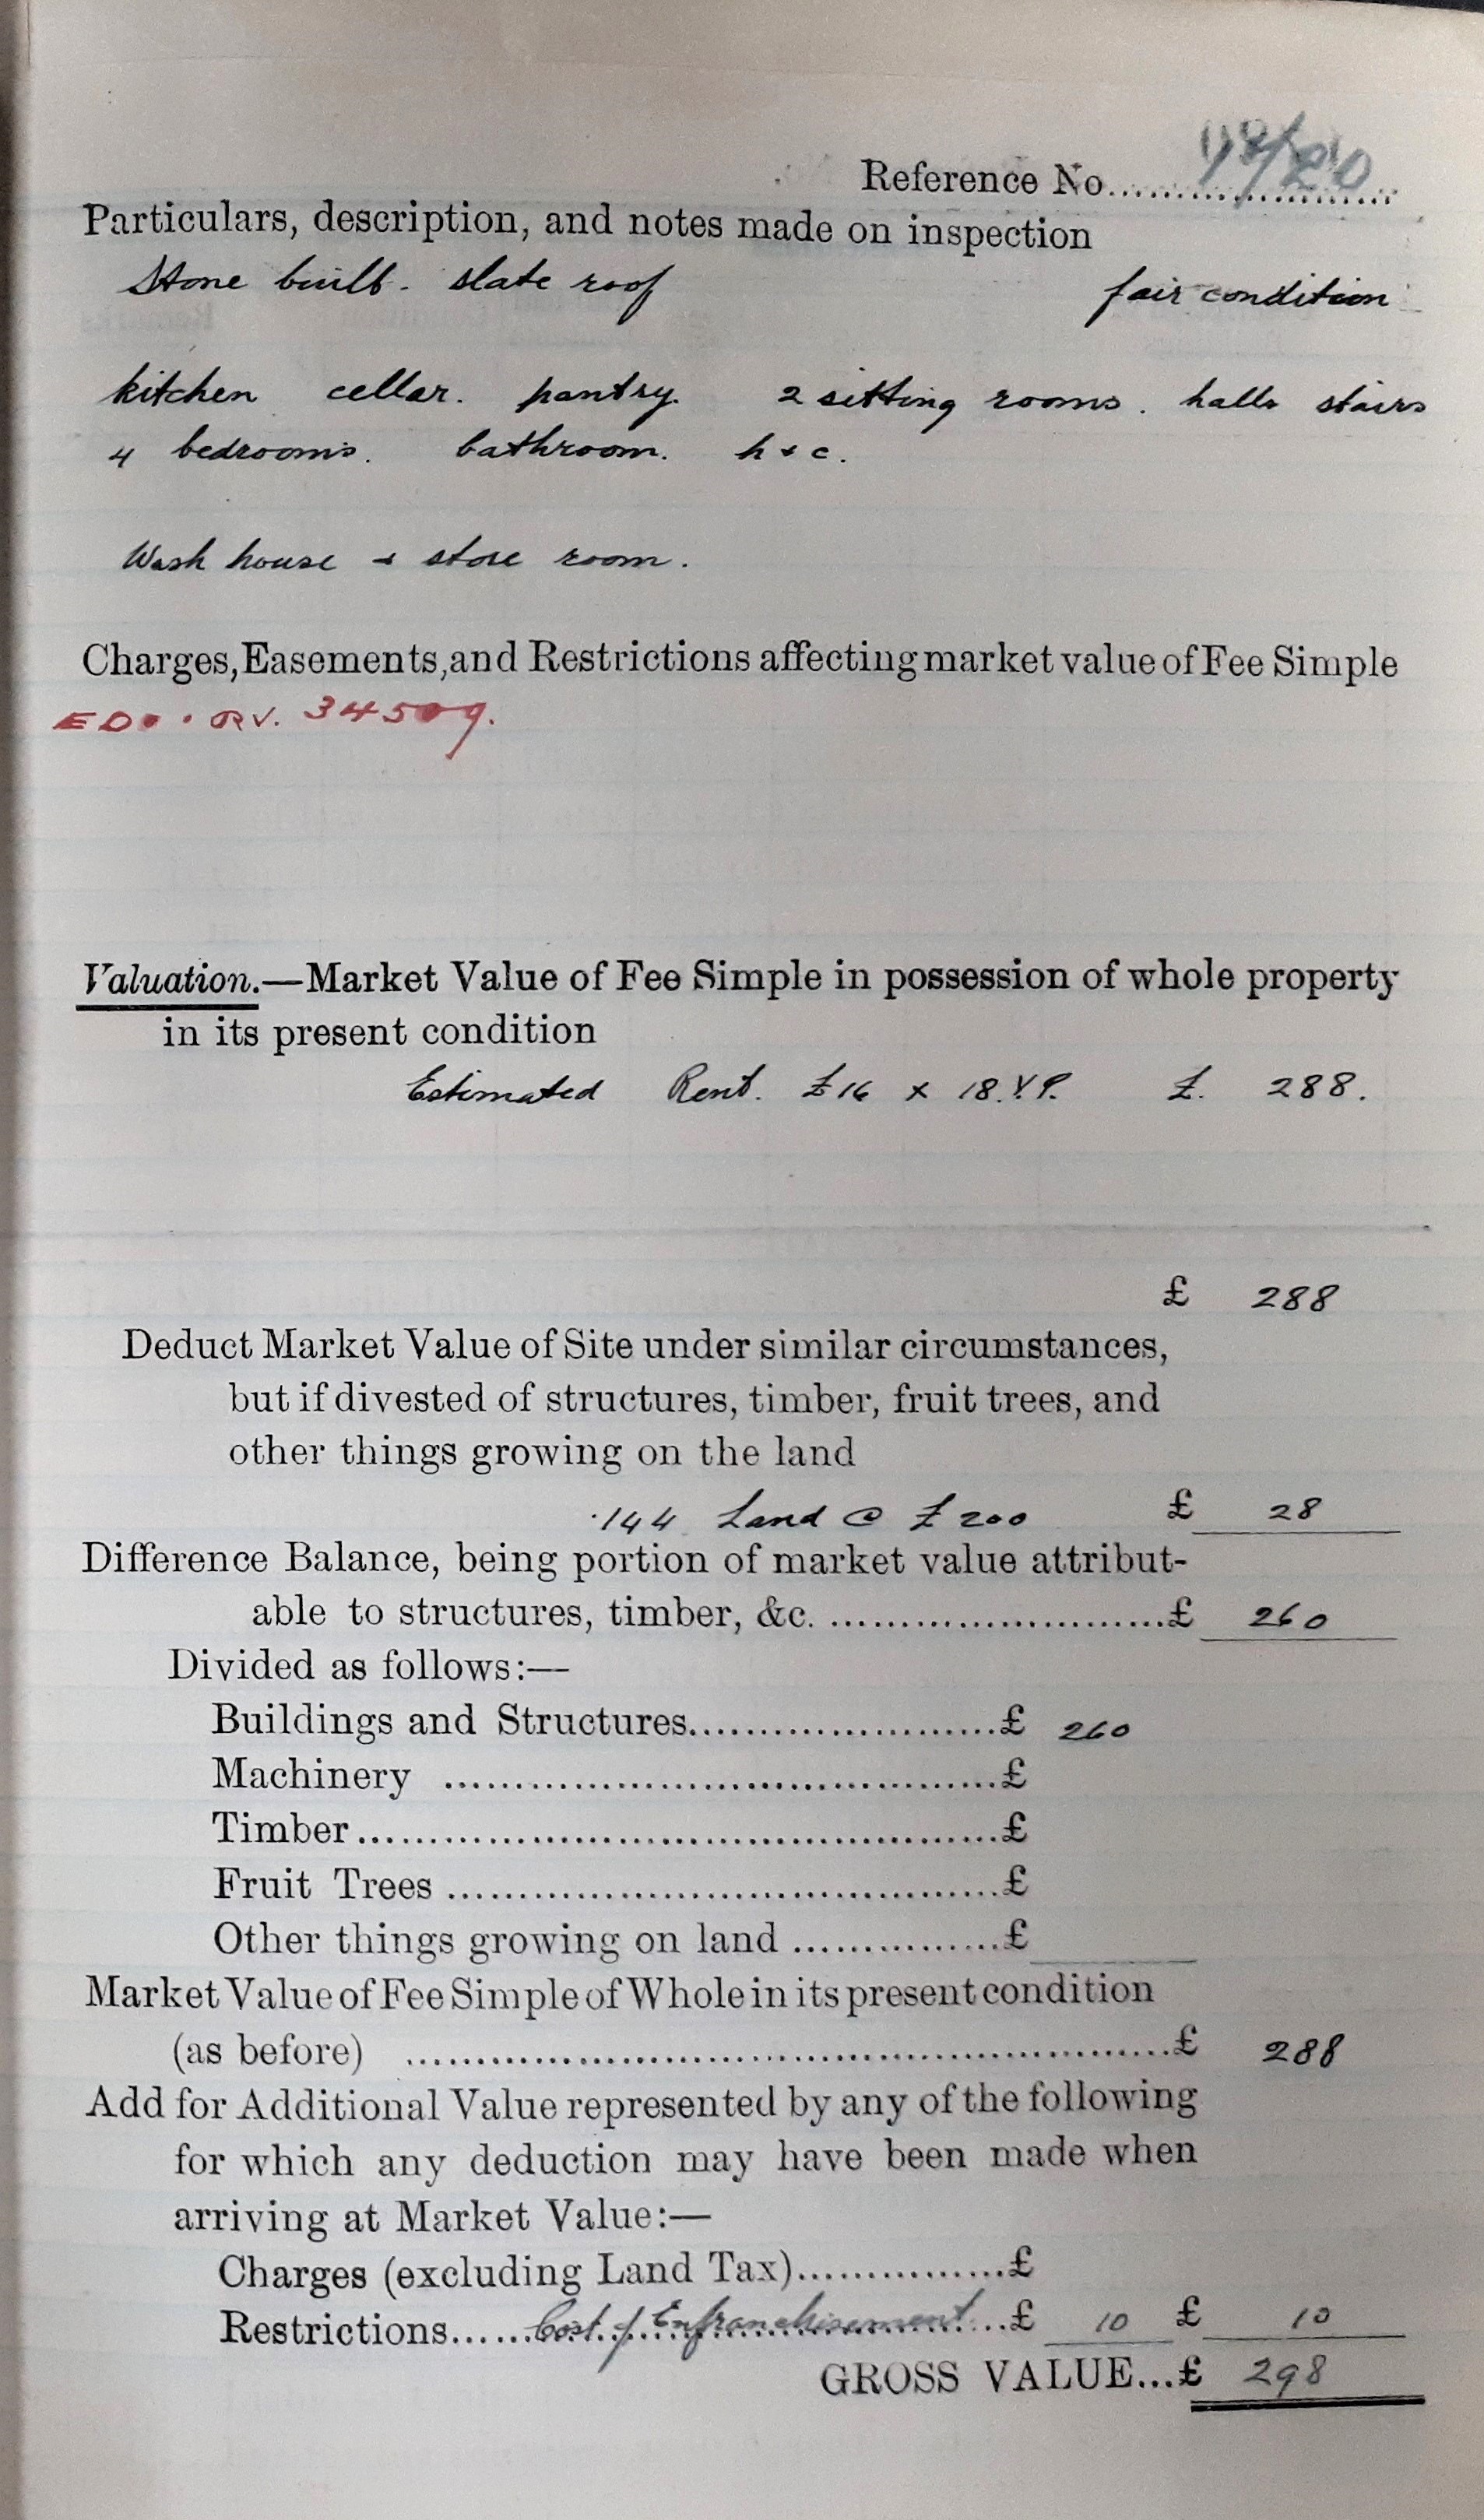 Reference No.
Particulars, description, and notes made on inspection
Stone built. slate roof fair condition
kitchen cellar. pantry. 2 sitting rooms. halls stairs
4 bedrooms. bathroom. h & c.
Wash house & store room.
Charges, Easements, and Restrictions affecting market value of Fee Simple
Valuation.—Market Value of Fee Simple in possession of whole property
in its present condition
Estimated Rent. £16 x 18.Y.P. £. 288.
£ 288
Deduct Market Value of Site under similar circumstances,
but if divested of structures, timber, fruit trees, and
other things growing on the land
.144 Land @ £200 £ 28
Difference Balance, being portion of market value attribut-
able to structures, timber, &c. ........................£ 260
Divided as follows:—
Buildings and Structures......................£ 260
Machinery .......................................£
Timber.............................................£
Fruit Trees .......................................£
Other things growing on land ................£
Market Value of Fee Simple of Whole in its present condition
(as before) ......................................................£ 288
Add for Additional Value represented by any of the following
for which any deduction may have been made when
arriving at Market Value:—
Charges (excluding Land Tax)...............£
Restrictions......Cost of Enfranchisement...£ 10 £ 10
GROSS VALUE...£ 298